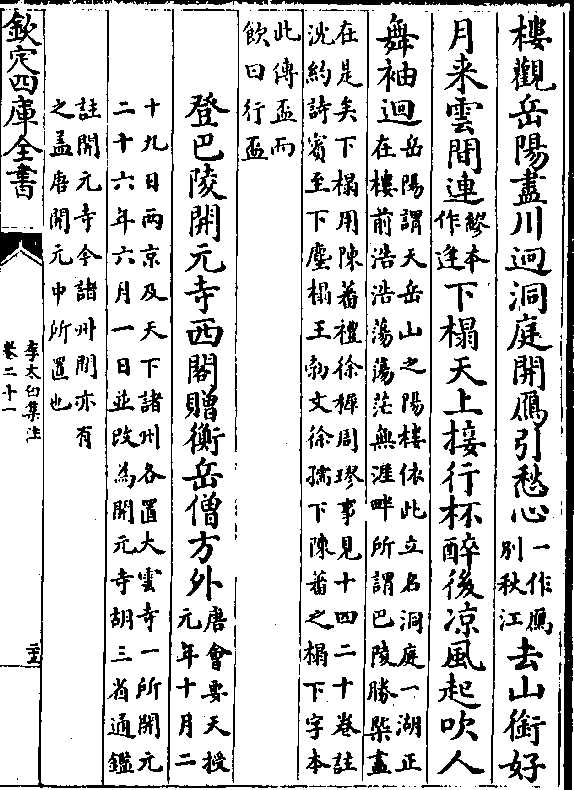 樓觀岳陽盡川迥洞庭開鴈引愁心一作鴈別秋江去山銜好
月来雲間連繆本作逢下榻天上接行杯醉後凉風起吹人
舞袖迴岳陽謂天岳山之陽樓依此立名洞庭一湖正
在樓前浩浩蕩蕩茫無涯畔所謂巴陵勝槩盡
在是矣下榻用陳蕃禮徐穉周璆事見十四二十卷註
沈約詩賓至下塵榻王勃文徐孺下陳蕃之榻下字本
此傳盃而
飲曰行盃
登巴陵開元寺西閣贈衡岳僧方外唐會要天授
元年十月二
十九日兩京及天下諸州各置大雲寺一所開元
二十六年六月一日並改為開元寺胡三省通鑑
註開元寺今諸州間亦有
之盖唐開元中所置也
欽定四庫全書
李太白集注
卷二十一